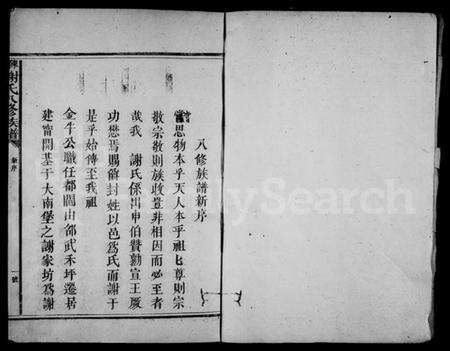 八修族譜新序
嘗思物本乎天人本乎祖祖尊則宗
敬宗敬則族收豈非相因而必至者
哉我 謝氏係出申伯贊勷宣王厥
功懋焉賜爵封姓以邑為氏而謝于
是乎始傳至我祖
金牛公職任都閫由邵武禾坪遷居
建甯開基于大南堡之謝家坊為謝
謝氏八修族譜
新序
一號
Search